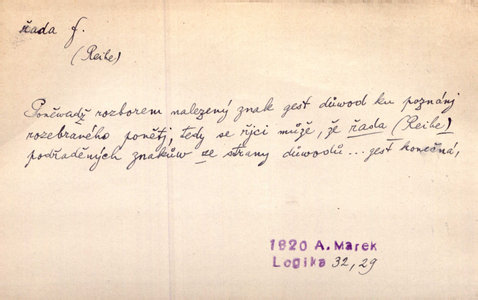 řada f.
(Reihe)
Poněwadž rozborem nalezený znak gest důwod ku poznánj
rozebraného ponětj, tedy se řjci může, že řada (Reihe)
podřaděných znakůw ze strany důwodů... gest konečná,
1820 A. Marek
Logika 32, 29